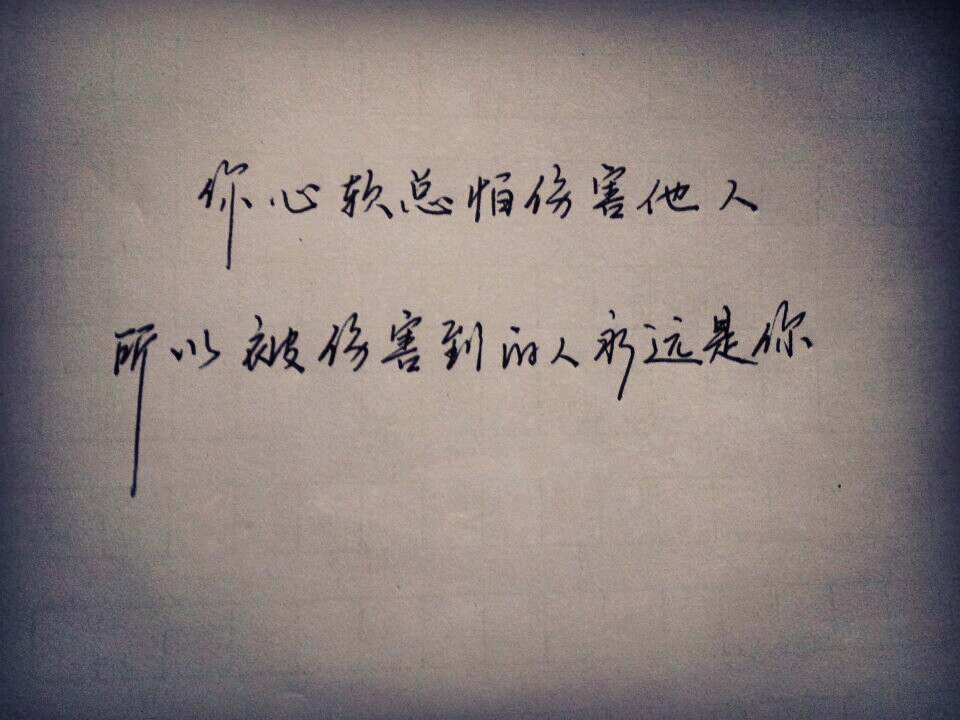 你心软总怕伤害他人
所以被伤害到的人永远是你